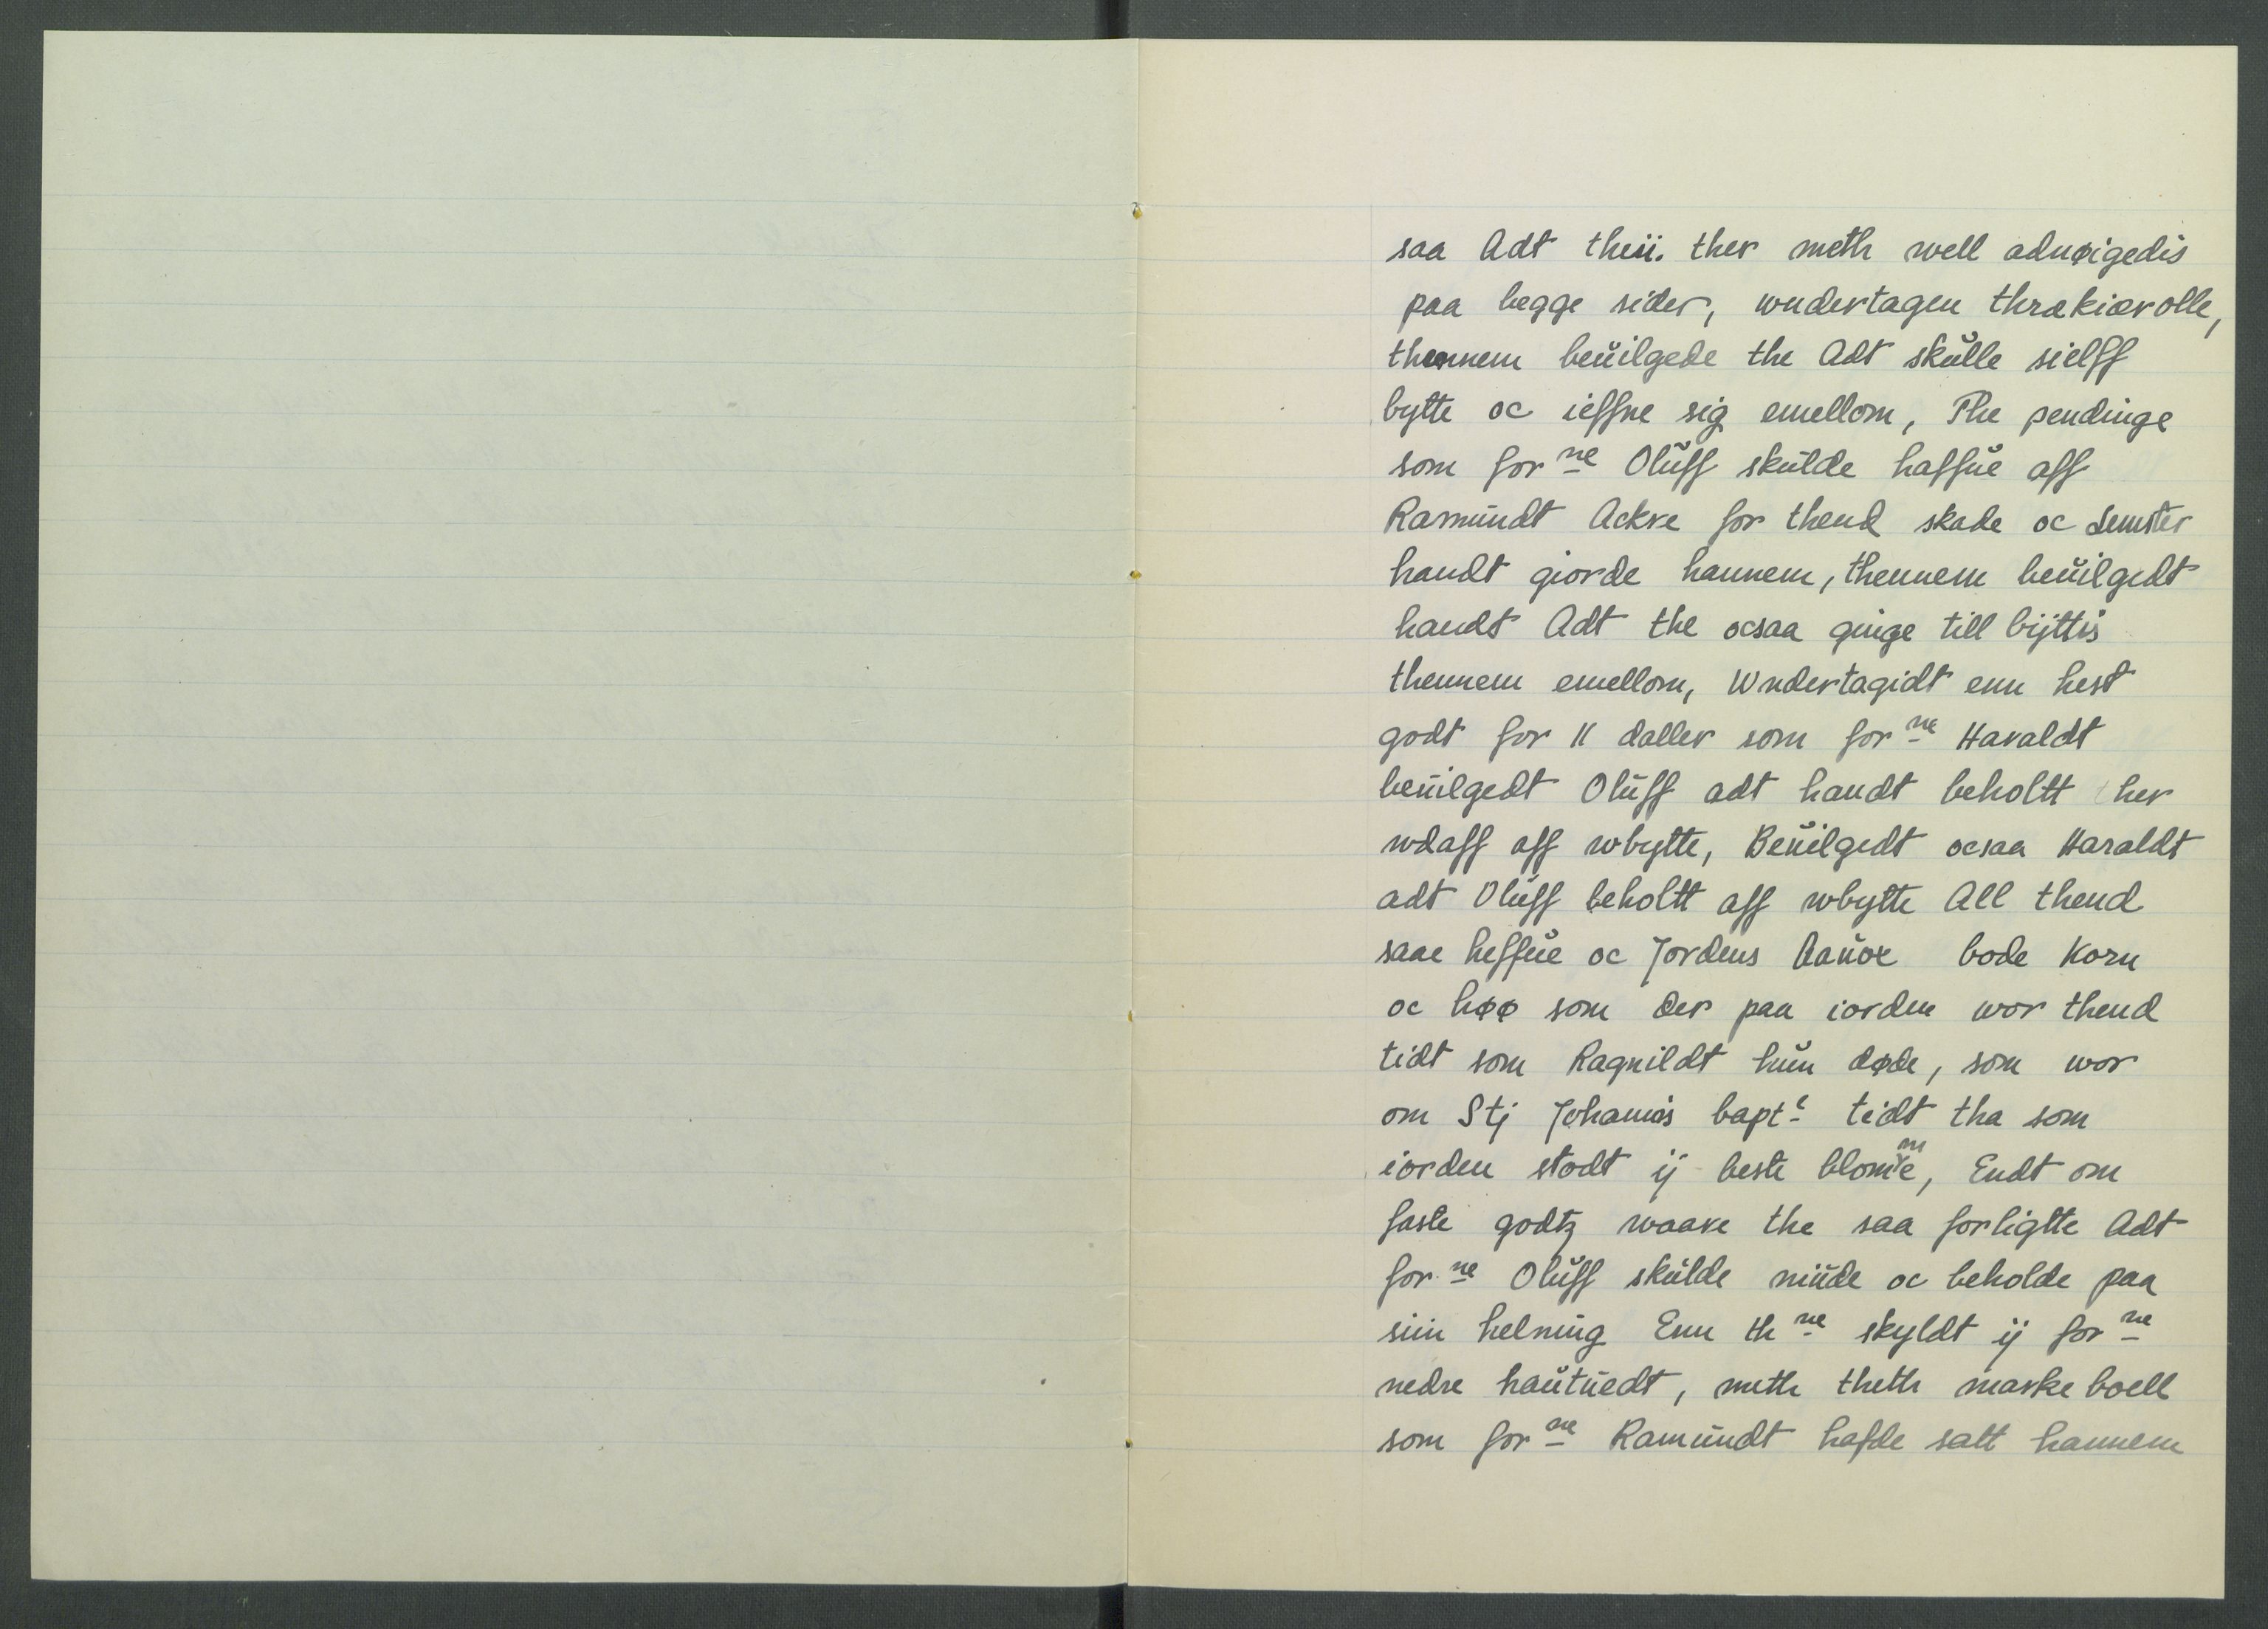 saa Adt theii. ther meth well adnøigedis
paa begge sider, wndertagen thrækiærolle,
thennem beŭilgede the Adt skŭlle sielff
bytte oc ieffne sig emellom, The pendinge
som for ne Olŭff skŭlde haffŭe aff
Ramŭndt Ackre for thend skade oc
handt giorde hannem, thennem beŭilgedt
handt Adt the ocsaa ginge till bÿttis
thennem emellom, Wndertagidt enn hest
godt for 11 daller som for ne Haraldt
beŭilgedt Olŭff adt handt beholtt ther
wdaff aff wbytte, Beŭilgedt ocsaa Haraldt
adt Olŭff beholtt aff wbytte All thend
saae heffŭe oc Jordens Aaŭox bode Korn
oc høø som der paa iorden wor thend
tidt som Ragnildt hŭn døde, som wor
om Stj Johannis bapt e tidt tha som
iorden stodt ij beste blomme, Endt om
faste godtz waare the saa forligtte Adt
for ne Olŭff skŭlde nŭde oc beholde paa
siin helning Enn th ne skyldt ij for ne
nedre haŭtŭedt, meth theth marke boell
som for ne Ramŭndt hafde satt hannem